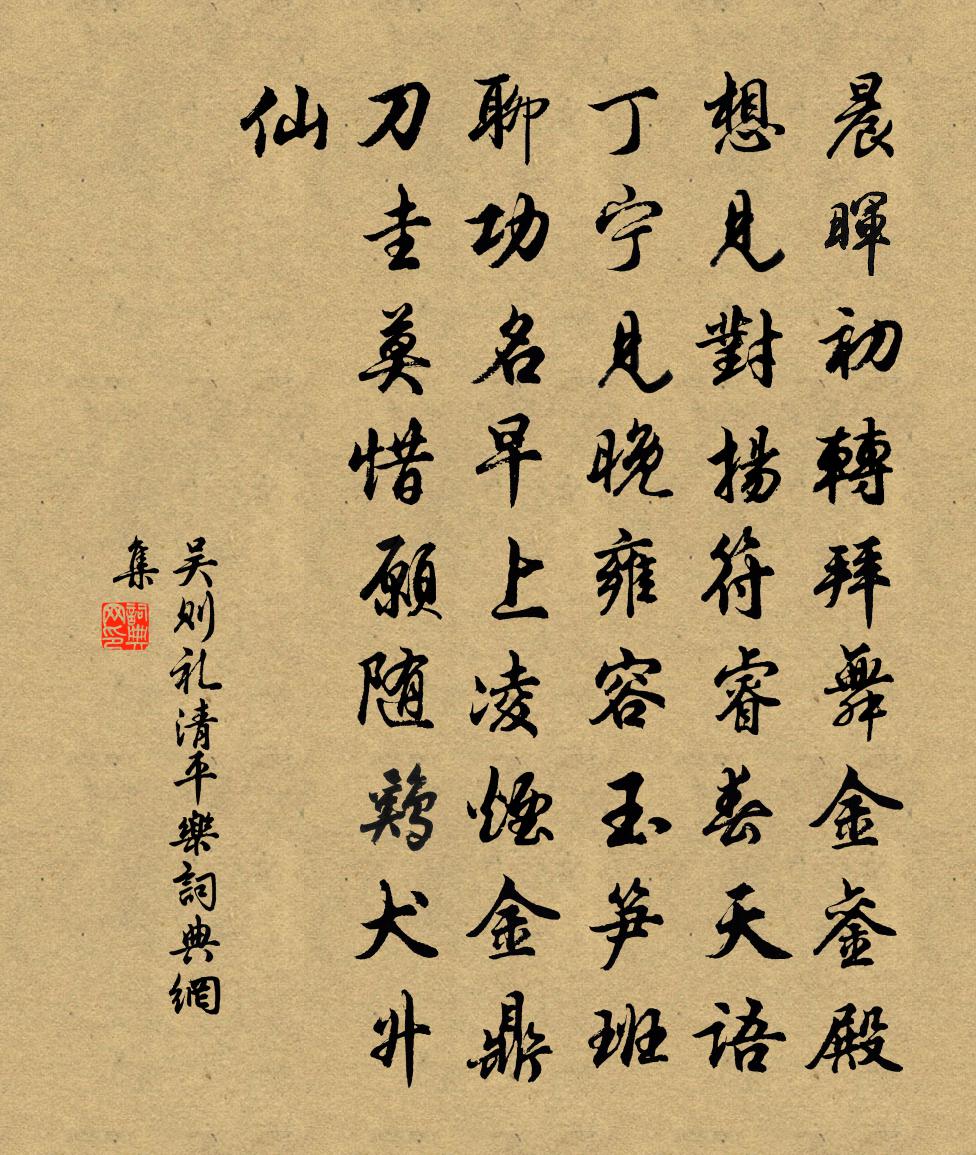 晨暉初轉拜舞金鑾殿
想見對揚符睿春天語
丁宁見晚雍容玉笋班
聊功名早上凌煙金鼎
刀圭莫惜願随鷄犬升
仙
吴则礼清平樂詞典網
集
詞典網印